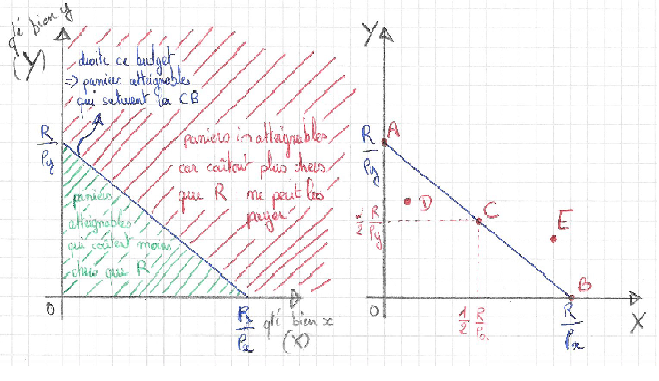 qté bien y
(Y)
droite de budget
=> paniers atteignables
qui saturent la CB
R
Py
paniers inatteignables
car coûtent plus chers
que R ne peut les
payer
paniers
atteignables
qui coûtent moins
chers que R
0
R
Px
qté bien x
(X)
Y
A
R
Py
D
1/2 R
Py
C
E
B
0
1/2 R
Px
R
Px
X